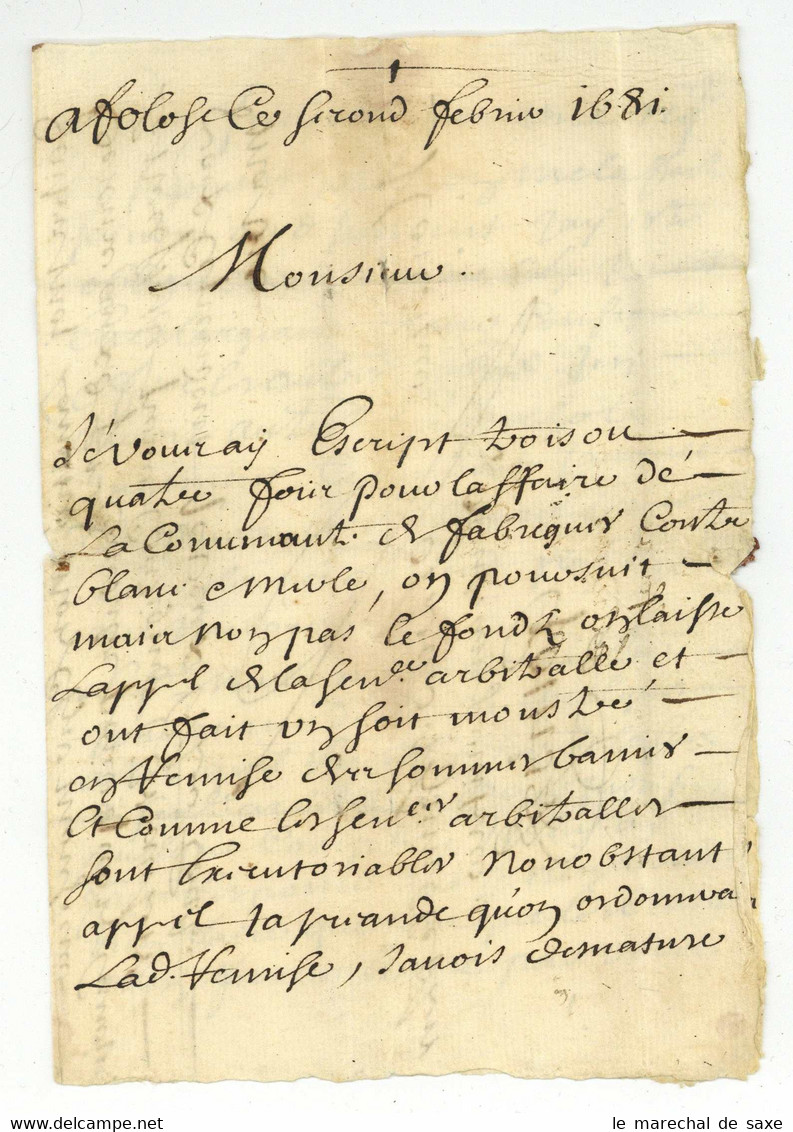 A Tolose Ce second febrier 1681.
Monsieur.
Je vous ay Escript trois ou
quatre fois pour laffaire de
La Communaute de fabregues Contre
blanc emule, on poursuit
mais non pas le fonds on laisse
Lappel de la sen.ce arbitralle et
ont fait un soit monstré
en Remise des sommes
Et Comme les sen.ces arbitralles
sont Executoriables Nonobstant
appel Japreande quon ordonnera
Lad. Remise, Javois
le marechal de saxe